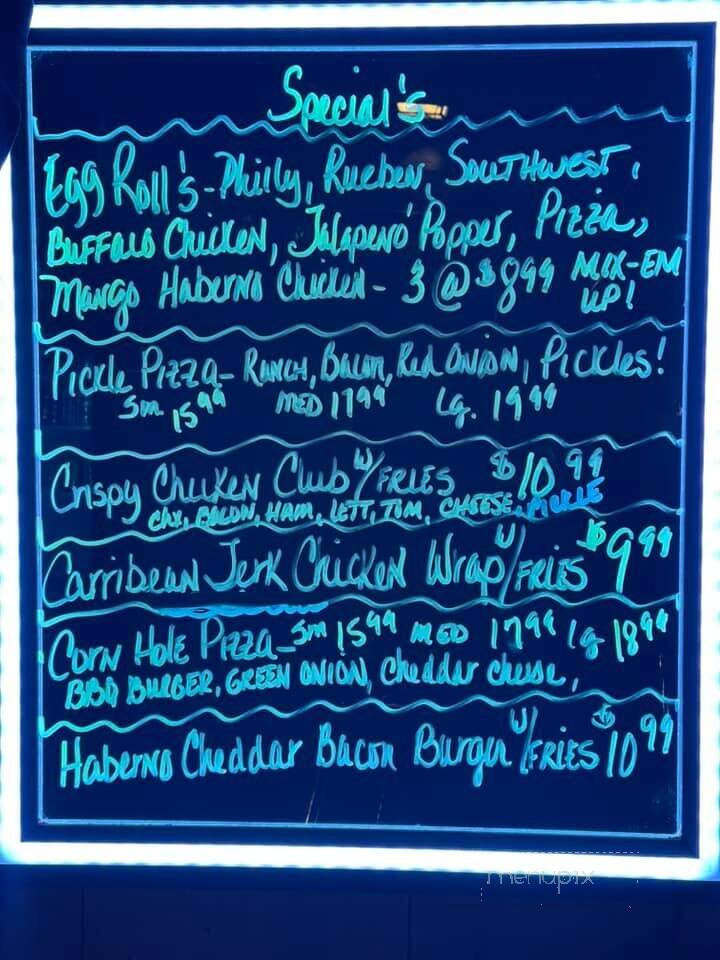 Special's
Egg Roll's - Philly, Rueben, SOUTHWEST,
BUFFALO Chicken, Jalapeno Popper, Pizza,
Mango Haberno Chicken - 3 @ $8.99 MIX-EM
UP!
Pickle Pizza - RANCH, Bacon, Red ONION, Pickles!
Sm. 15.99 MED 17.99 Lg. 19.99
Crispy Chicken Club W/FRIES $10.99
CHX, BACON, HAM, LETT, TOM, CHEESE, PICKLE
Carribean Jerk Chicken Wrap W/FRIES $9.99
CORN Hole Pizza - Sm 15.99 MED 17.99 lg 18.99
BBQ BURGER, GREEN ONION, Cheddar cheese,
Haberno Cheddar Bacon Burger W/FRIES $10.99
menupix